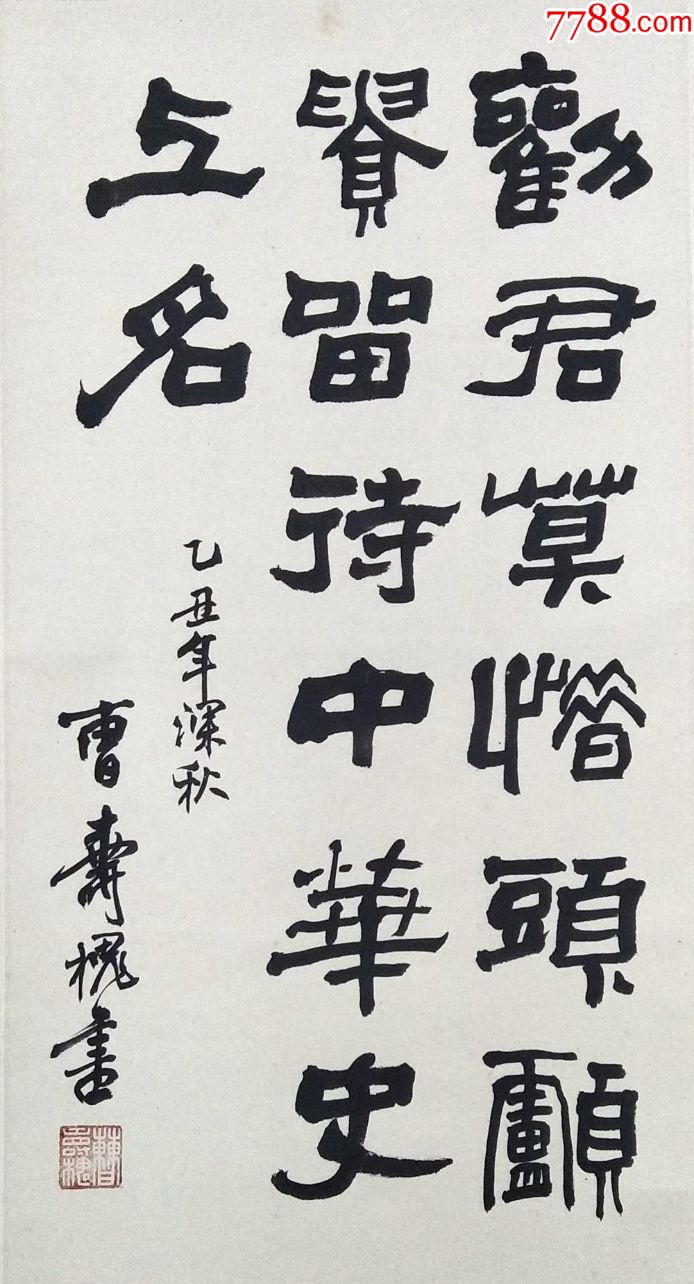 7788.com
勸君莫惜頭顱
貴留待中華史
上名
乙丑年深秋
曹壽槐書